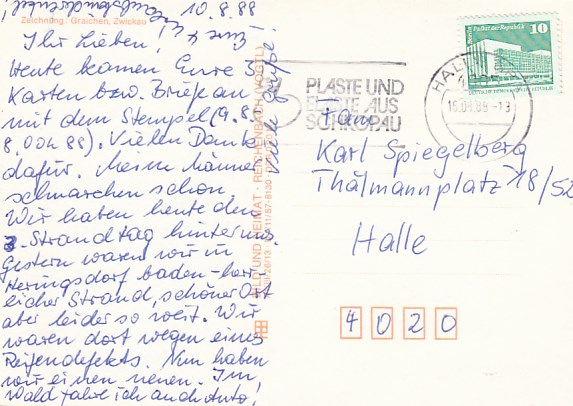 10.8.88
Zeichnung: Graichen, Zwickau
Ihr Lieben!
Heute kamen Eure 3
Karten bzw. Briefe an
mit dem Stempel (9.8.
8.00h 88). Vielen Dank
dafür. Meine Männer
schnarchen schon.
Wir haben heute den
3. Strandtag hinter uns.
Gestern waren wir in
Heringsdorf baden – herr-
licher Strand, schöner Ort
aber leider so weit. Wir
waren dort wegen eines
Reifendefekts. Nun haben
wir einen neuen. Im
Wald fahre ich auch Auto!
Viele Grüße
BILD UND HEIMAT · REICHENBACH (VOGTL)
PLASTE UND
ELASTE AUS
SCHKOPAU
HALLE
Palast der Republik
10
Fam.
Karl Spiegelberg
Thälmannplatz 18/52
Halle
4020